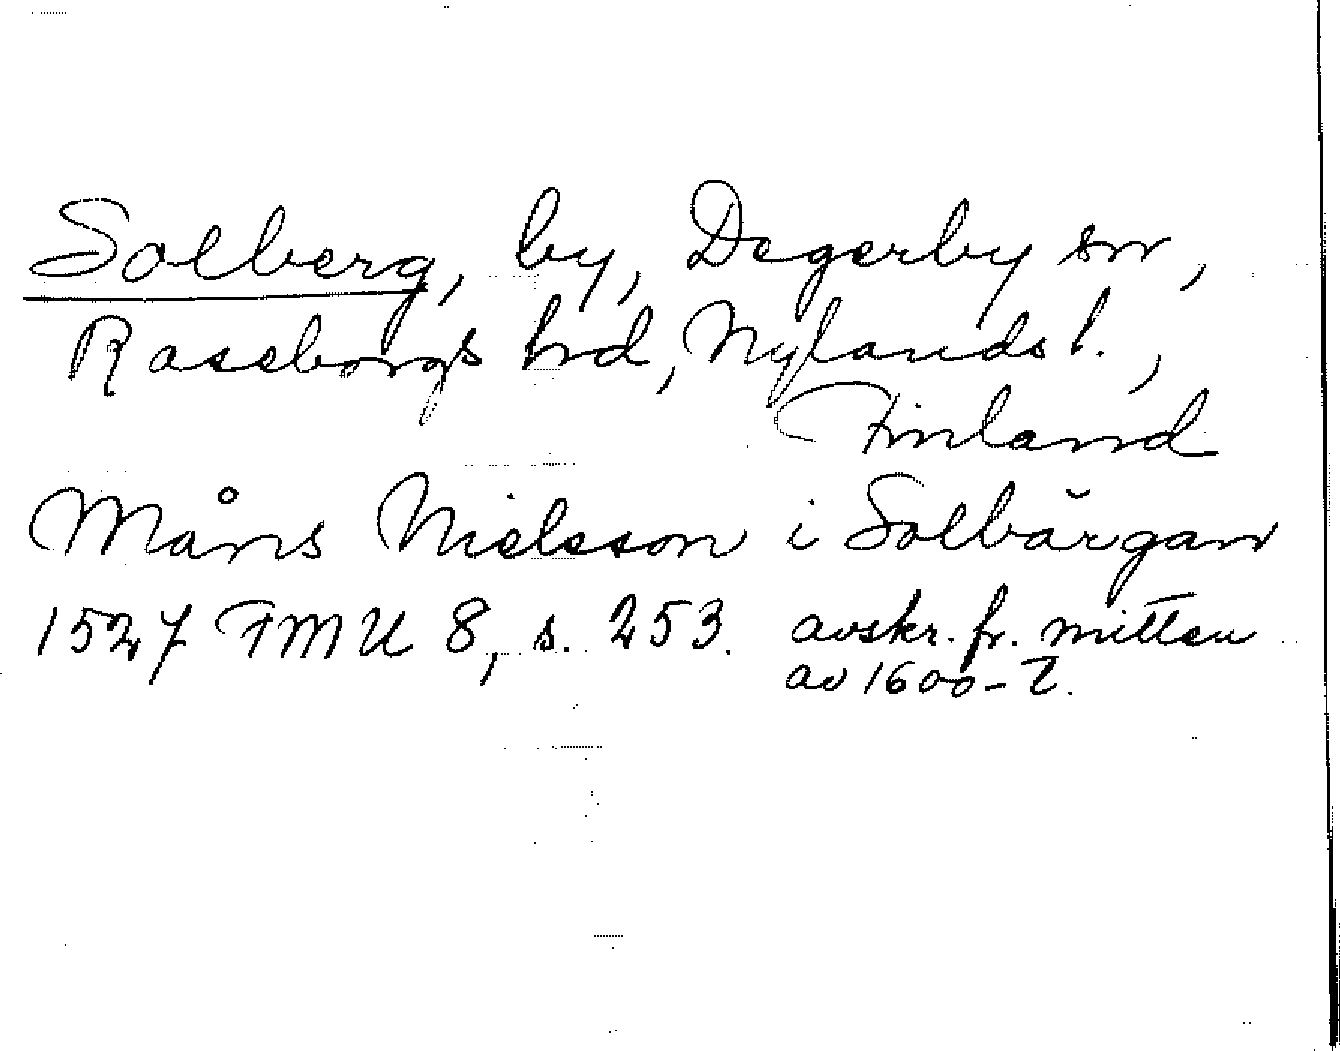 Solberg, by, Degerby sn,
Raseborgs hrd, Nylands l.,
Finland
Måns Nielsson i Solbärgan
1527 FMU 8, s. 253. avskr. fr. mitten
av 1600-t.